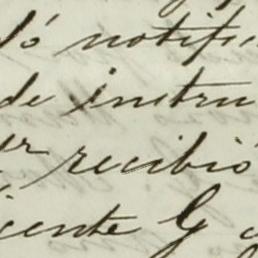 ló notifi
de instru
dr recibió
icente G